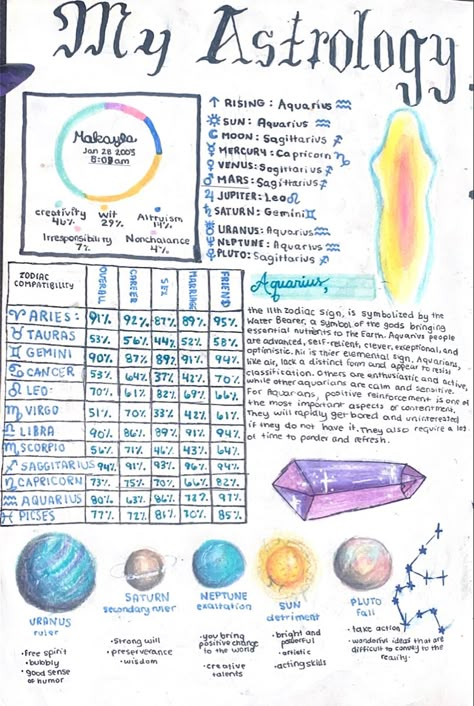 My Astrology
Makayla
Jan 28 2003
8:08am
creativity
46%
wit
29%
Altruism
14%
Irresponsibility
7%
Nonchalance
4%
↑ RISING: Aquarius ♒
☼ SUN: Aquarius ♒
☾ MOON: Sagittarius ♐
☿ MERCURY: Capricorn ♑
♀ VENUS: Sagittarius ♐
♂ MARS: Sagittarius ♐
♃ JUPITER: Leo ♌
♄ SATURN: Gemini ♊
♅ URANUS: Aquarius ♒
♆ NEPTUNE: Aquarius ♒
♇ PLUTO: Sagittarius ♐
ZODIAC COMPATIBILITY OVERALL CAREER SEX MARRIAGE FRIEND
♈ ARIES: 91% 92% 87% 89% 95%
♉ TAURUS 53% 56% 44% 52% 58%
♊ GEMINI 90% 87% 89% 91% 94%
♋ CANCER 53% 64% 37% 42% 70%
♌ LEO: 70% 61% 82% 69% 66%
♍ VIRGO 51% 70% 33% 42% 61%
♎ LIBRA 90% 86% 89% 91% 94%
♏ SCORPIO 56% 71% 46% 43% 64%
♐ SAGGITARIUS 94% 91% 93% 96% 94%
♑ CAPRICORN 73% 75% 70% 66% 82%
♒ AQUARIUS 80% 63% 86% 72% 97%
♓ PICSES 77% 72% 81% 70% 85%
Aquarius,
the 11th zodiac sign, is symbolized by the
Water Bearer, a symbol of the gods bringing
essential nutrients to the Earth. Aquarius people
are advanced, self-reliant, clever, exceptional, and
optimistic. Air is their elemental sign. Aquarians,
like air, lack a distinct form and appear to resist
classification. Others are enthusiastic and active,
while other aquarians are calm and sensitive.
For Aquarians, positive reinforcement is one of
the most important aspects or contentment.
They will rapidly get bored and uninterested
if they do not have it. They also require a lot
of time to ponder and refresh.
URANUS
ruler
• free spirit
• bubbly
• good sense
of humor
SATURN
secondary ruler
• Strong will
• preserverance
• wisdom
NEPTUNE
exaltation
• you bring
positive change
to the world
• creative
talents
SUN
detriment
• bright and
powerful
• artistic
• acting skills
PLUTO
fall
• take action
• wonderful ideas that are
difficult to convey to the
reality.